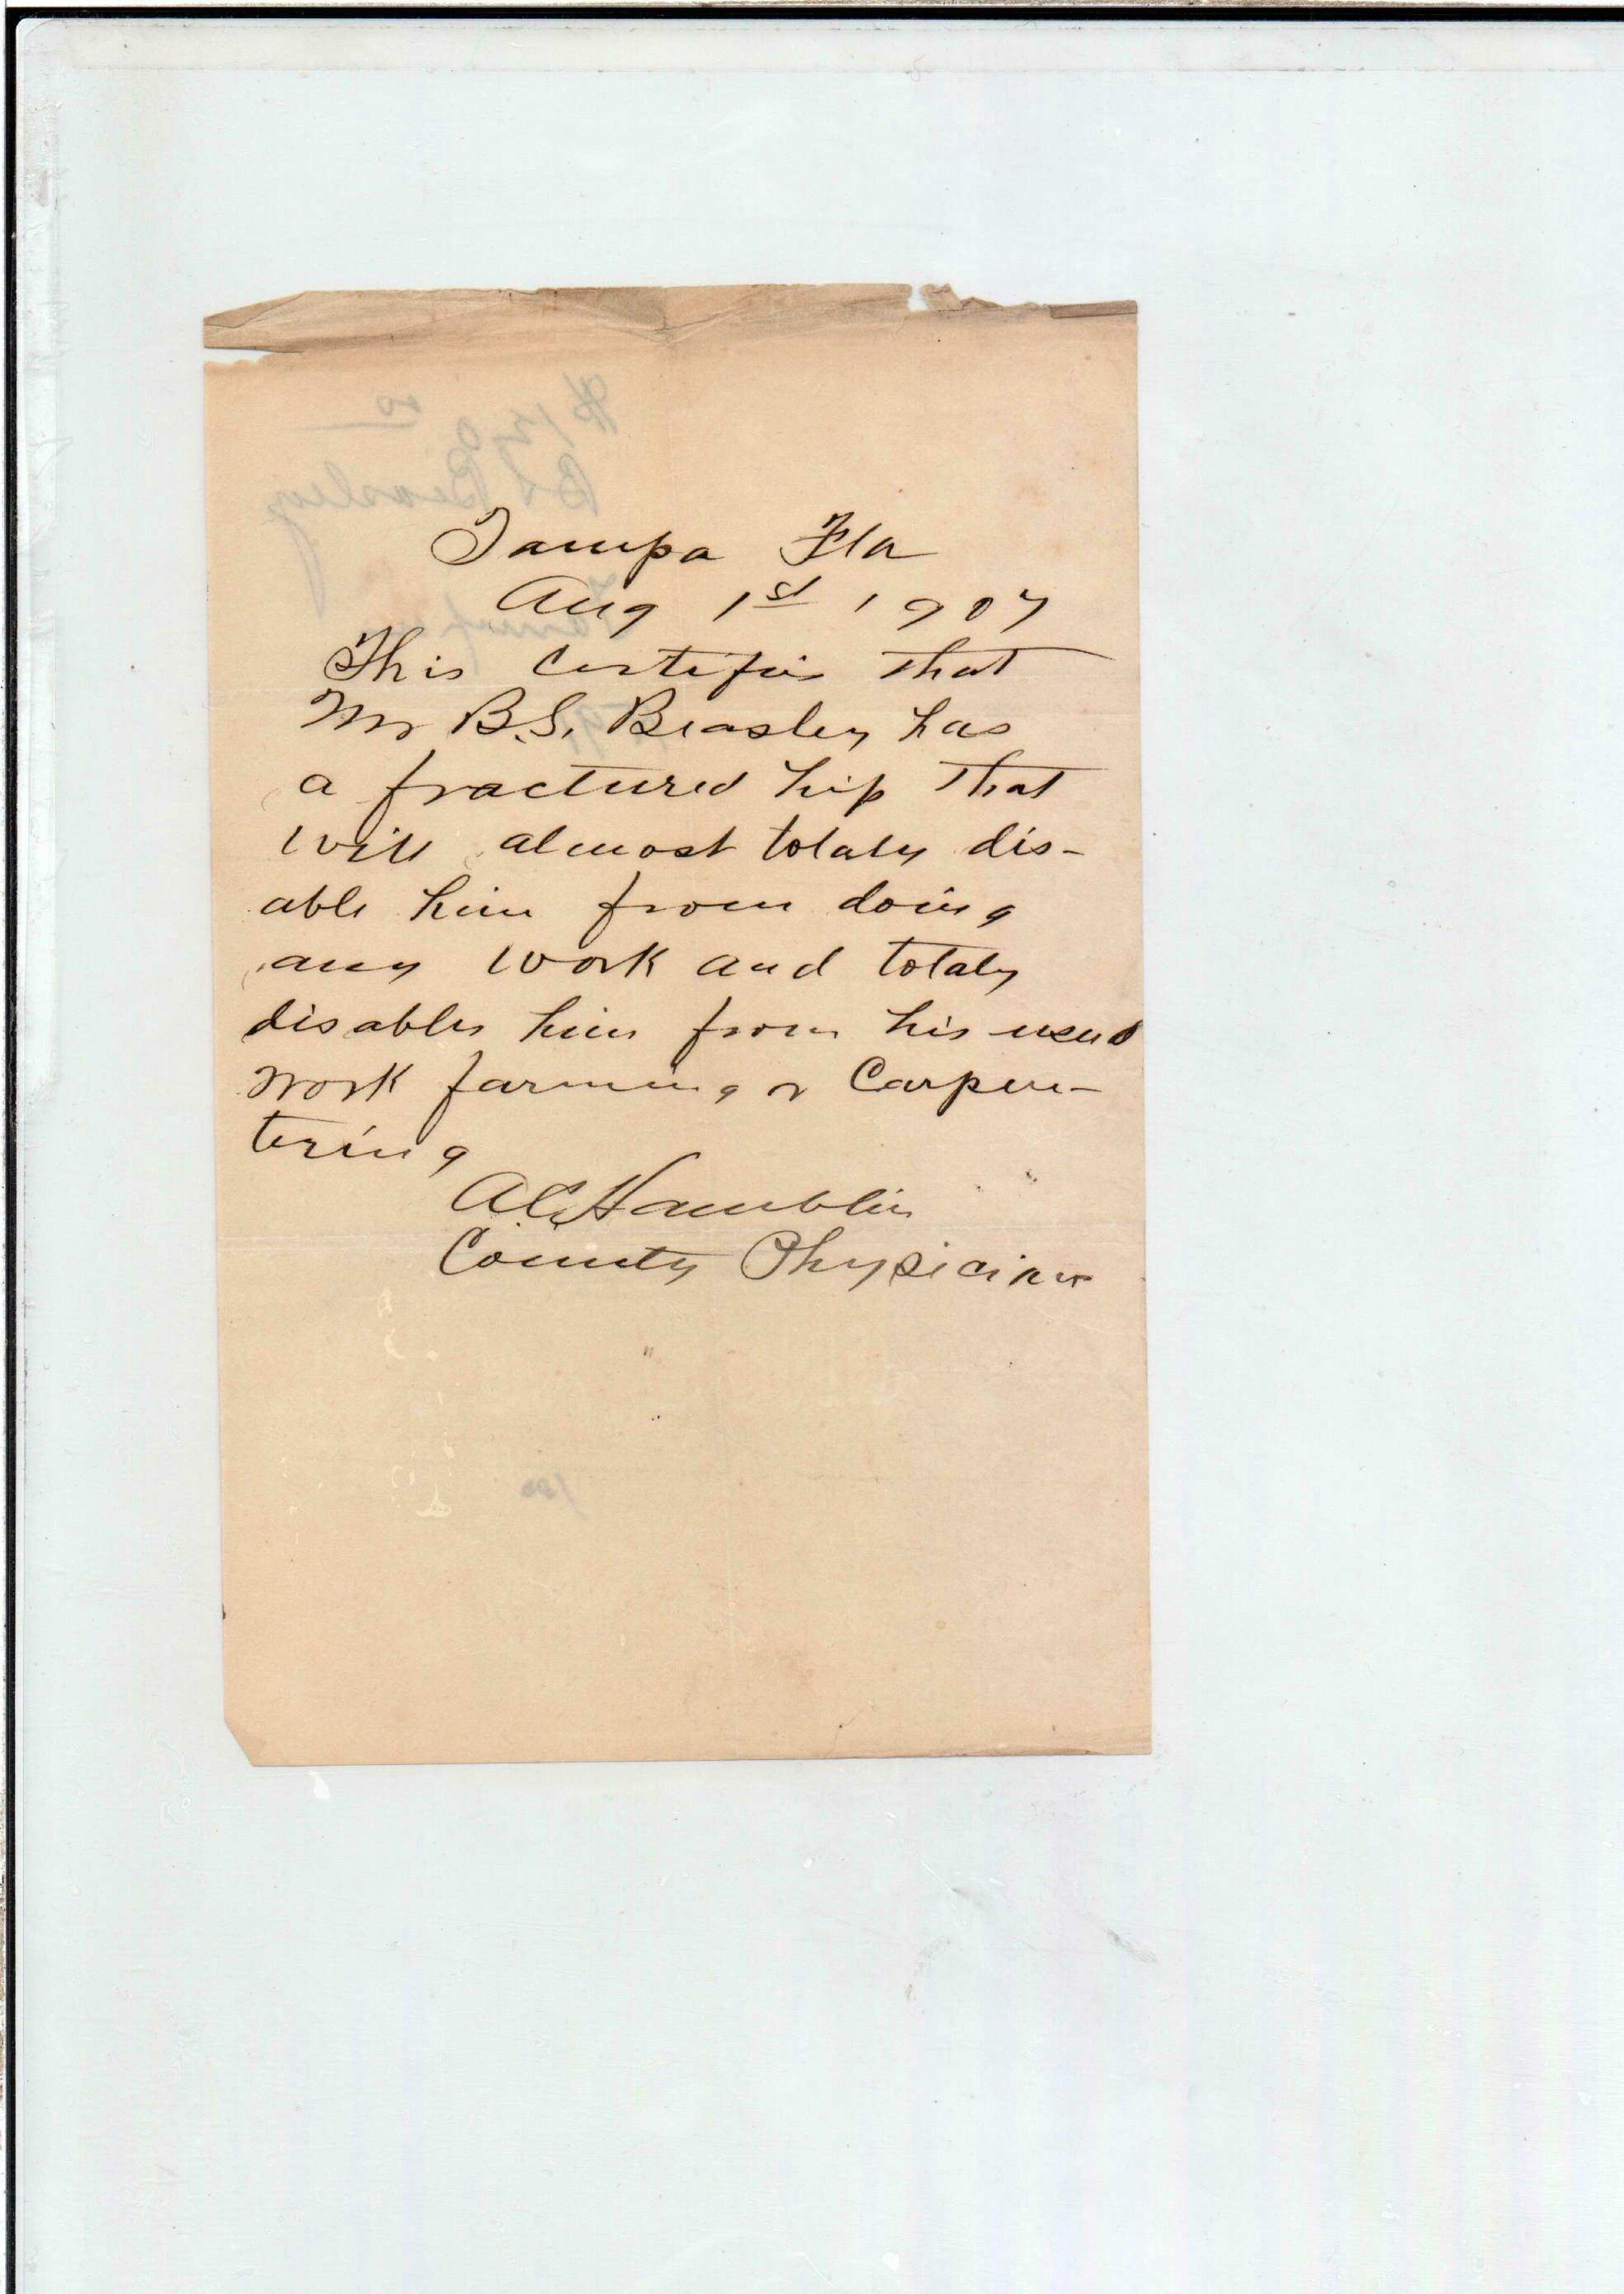 Tampa Fla
Aug 1st 1907
This Certifies that
Mr B.S. Beasley has
a fractured hip that
will almost totaly dis-
able him from doing
any work and totaly
disables him from his usual
work farming or Carpen-
tering
A.C. Hamblin
County Physician
B S Beasley